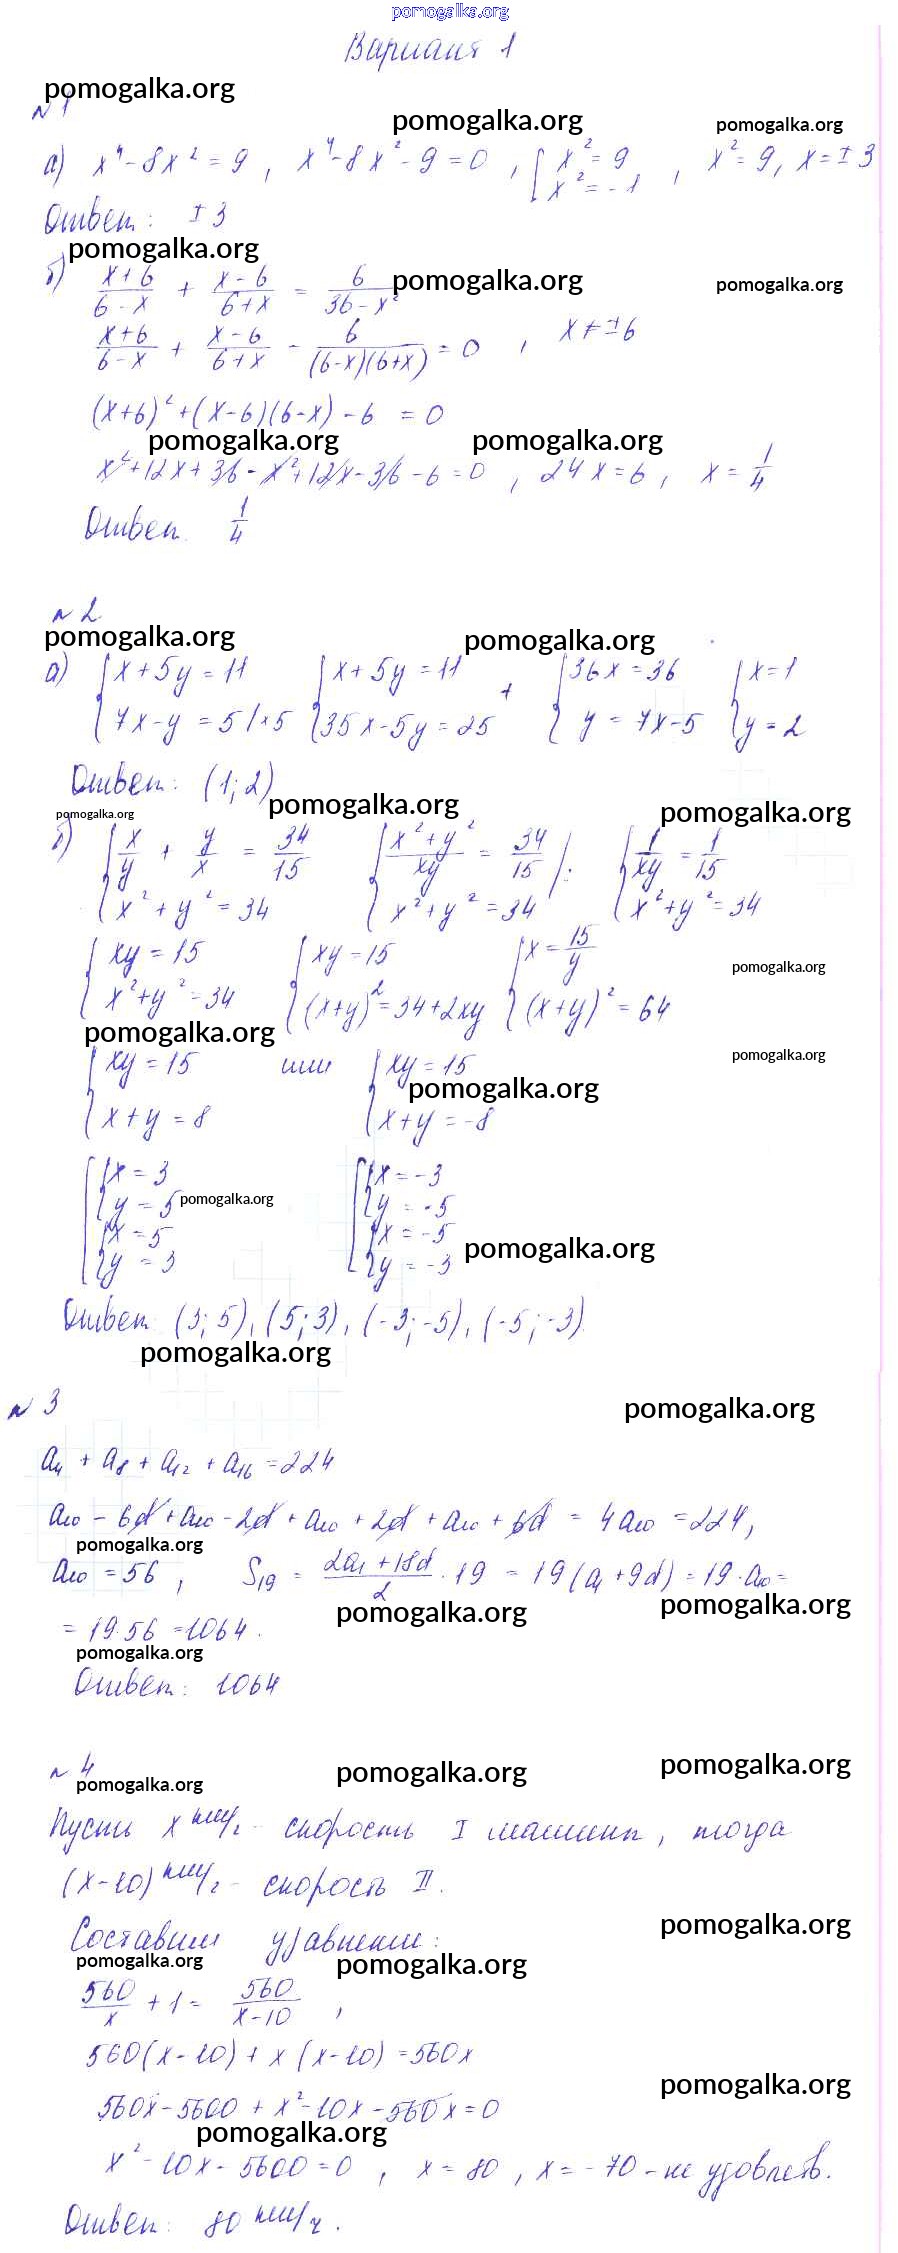 pomogalka.org
Вариант 1
pomogalka.org
№ 1
pomogalka.org pomogalka.org
а) x⁴ - 8x² = 9, x⁴ - 8x² - 9 = 0, [x² = 9 x² = -1, x² = 9, x = ±3
Ответ: ±3
pomogalka.org
б) (x+6)/(6-x) + (x-6)/(6+x) = 6/(36-x²)
pomogalka.org pomogalka.org
(x+6)/(6-x) + (x-6)/(6+x) - 6/((6-x)(6+x)) = 0, x ≠ ±6
(x+6)² + (x-6)(6-x) - 6 = 0
pomogalka.org pomogalka.org
x² + 12x + 36 - x² + 12x - 36 - 6 = 0, 24x = 6, x = 1/4
Ответ 1/4
№ 2
pomogalka.org pomogalka.org
а) {x + 5y = 11 {x + 5y = 11 + {36x = 36 {x = 1
7x - y = 5 | ×5 35x - 5y = 25 y = 7x - 5 y = 2
Ответ: (1; 2)
pomogalka.org pomogalka.org pomogalka.org
б) {x/y + y/x = 34/15 {(x² + y²)/xy = 34/15 | : {1/xy = 1/15
x² + y² = 34 x² + y² = 34 x² + y² = 34
{xy = 15 {xy = 15 {x = 15/y
pomogalka.org
x² + y² = 34 (x+y)² = 34 + 2xy (x+y)² = 64
pomogalka.org pomogalka.org
{xy = 15 или {xy = 15
pomogalka.org
x + y = 8 x + y = -8
[{x = 3 [{x = -3
y = 5 y = -5
pomogalka.org
{x = 5 {x = -5
pomogalka.org
y = 3 y = -3
Ответ: (3; 5), (5; 3), (-3; -5), (-5; -3)
pomogalka.org
№ 3
pomogalka.org
a₄ + a₈ + a₁₂ + a₁₆ = 224
a₁₀ - 6d + a₁₀ - 2d + a₁₀ + 2d + a₁₀ + 6d = 4a₁₀ = 224,
pomogalka.org
a₁₀ = 56, S₁₉ = (2a₁ + 18d)/2 · 19 = 19(a₁ + 9d) = 19 · a₁₀ =
pomogalka.org pomogalka.org
= 19·56 = 1064.
pomogalka.org
Ответ: 1064
№ 4
pomogalka.org pomogalka.org pomogalka.org
Пусть x км/ч - скорость I машины, тогда
(x-10) км/ч - скорость II.
pomogalka.org
Составим уравнение:
pomogalka.org pomogalka.org
560/x + 1 = 560/(x-10),
560(x-10) + x(x-10) = 560x
pomogalka.org
560x - 5600 + x² - 10x - 560x = 0
pomogalka.org
x² - 10x - 5600 = 0, x = 80, x = -70 - не удовлетв.
Ответ: 80 км/ч.